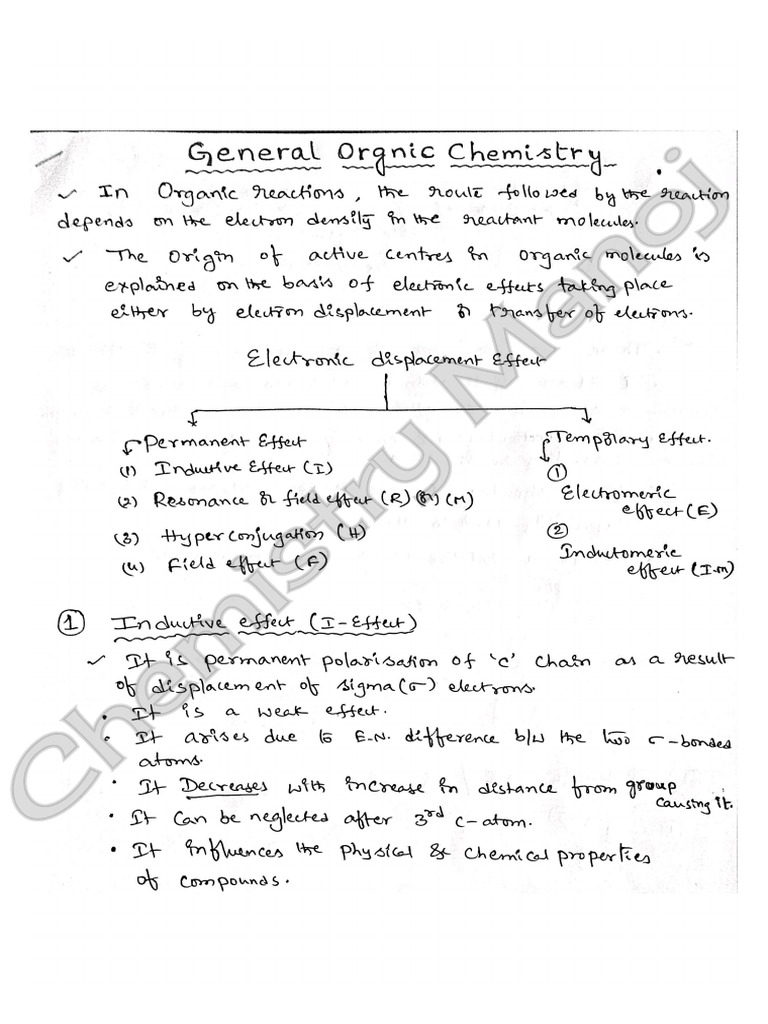 General Orgnic Chemistry
✓ In Organic reactions, the route followed by the reaction
depends on the electron density in the reactant molecules.
✓ The Origin of active centres in organic molecules is
explained on the basis of electronic effects taking place
either by election displacement or transfer of electrons.
Electronic displacement Effect
Permanent Effect
(1) Inductive Effect (I)
(2) Resonance or field effect (R) (or) (M)
(3) Hyperconjugation (H)
(4) Field effect (F)
Temporary Effect.
①
Electromeric
effect (E)
②
Inductomeric
effect (I.m)
① Inductive effect (I-Effect)
✓ It is permanent polarisation of 'c' chain as a result
of displacement of sigma (σ) electrons.
• It is a weak effect.
• It arises due to E.N. difference b/w the two σ-bonded
atoms.
• It Decreases with increase in distance from group
causing it.
• It can be neglected after 3rd c-atom.
• It influences the physical & chemical properties
of compounds.
Chemistry Manoj